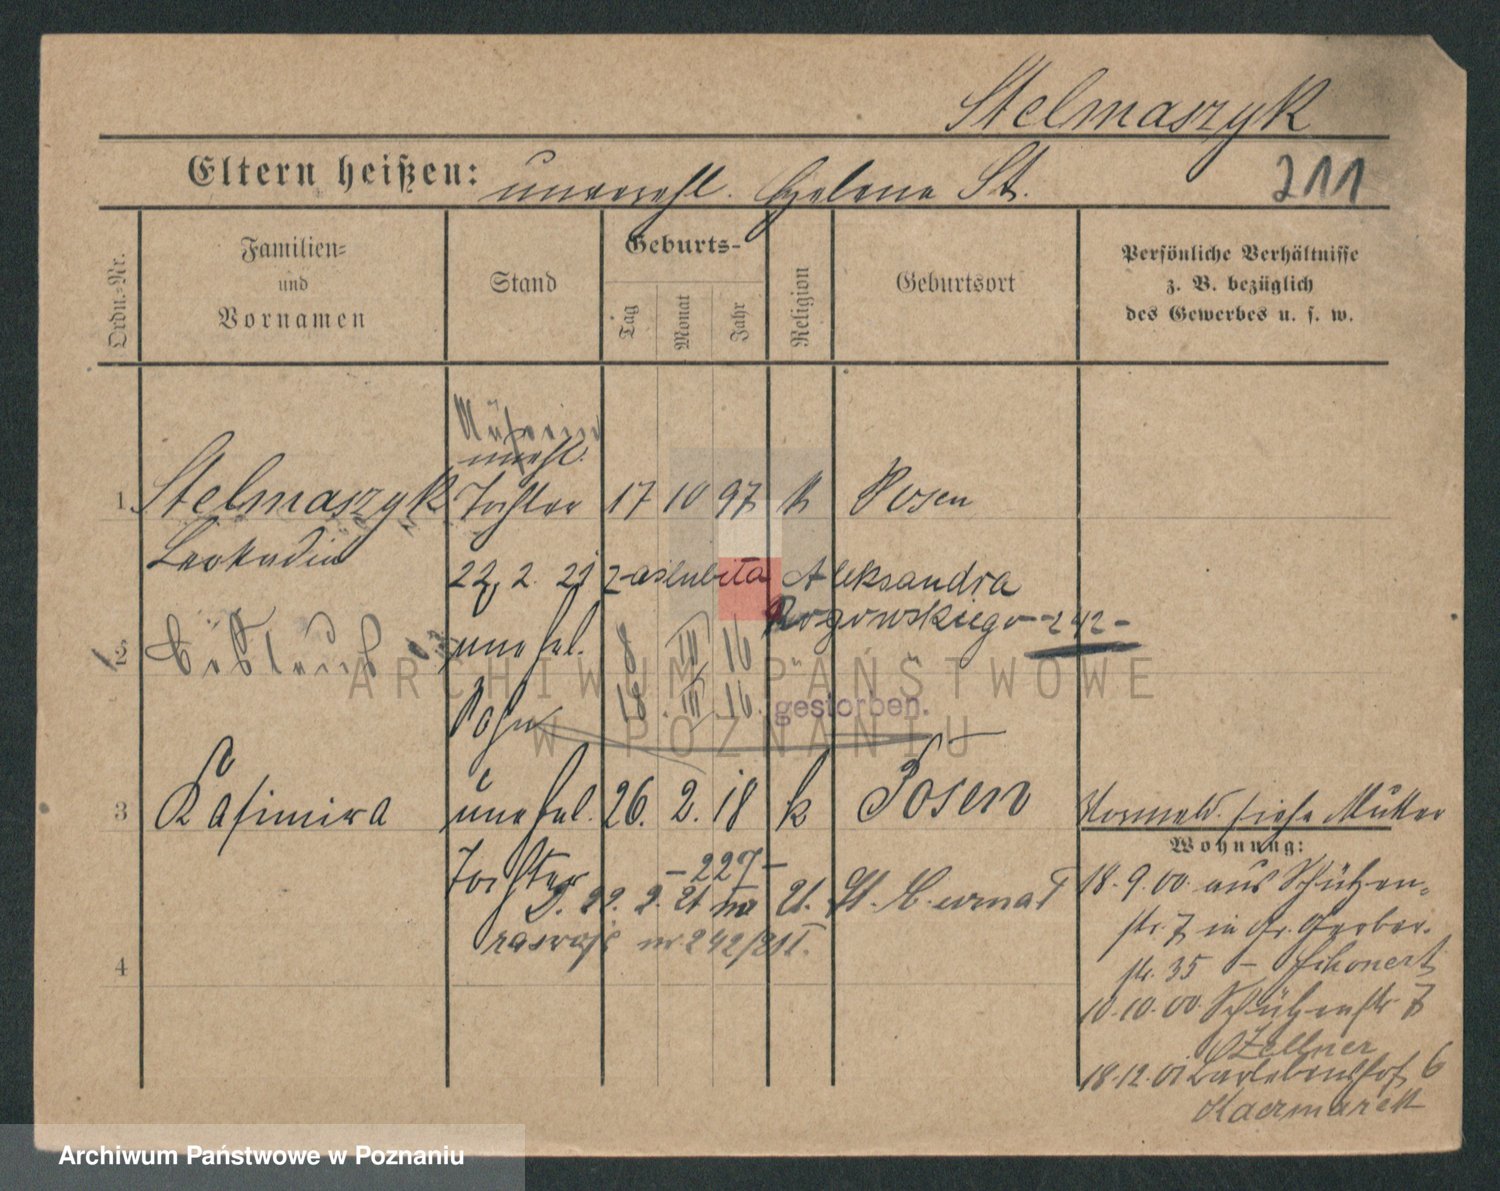 Stelmaszyk
Eltern heißen: unverehl. Helene St.
211
Ordn.=Nr.
Familien=
und
Vornamen
Stand
Geburts-
Tag
Monat
Jahr
Religion
Geburtsort
Persönliche Verhältnisse
z. B. bezüglich
des Gewerbes u. s. w.
Näherin
unehl.
1 Stelmaszyk Tochter 17 10 97 k Posen
Leokadia
22. 2. 21 zaslubiła Aleksandra
Rogowskiego - 242 -
2 unehel. 8 III 16
Sohn 18. III 16. gestorben.
3 Kasimira unehel. 26. 2. 18 k Posen
Vormeld. siehe Mutter
Wohnung:
Tochter - 227 -
22. 2. 21
nr 242/21
4
18.9.00. aus Schützen-
str. 7 in Gr. Gerber-
str. 35 -
10.10.00. Schützenstr 7
Zellner
18.12.01 6
Kaczmarek
ARCHIWUM PAŃSTWOWE
W POZNANIU
Archiwum Państwowe w Poznaniu